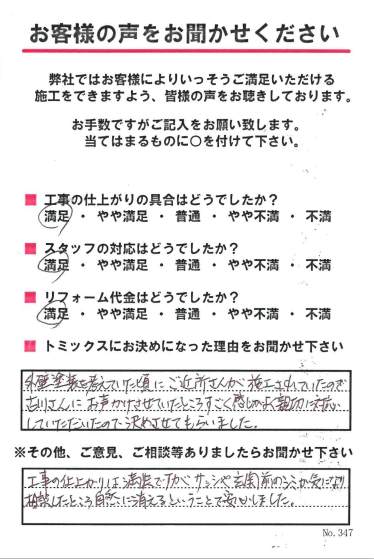 お客様の声をお聞かせください
弊社ではお客様によりいっそうご満足いただける
施工をできますよう、皆様の声をお聴きしております。
お手数ですがご記入をお願い致します。
当てはまるものに○を付けて下さい。
工事の仕上がりの具合はどうでしたか?
満足 ・ やや満足 ・ 普通 ・ やや不満 ・ 不満
スタッフの対応はどうでしたか?
満足 ・ やや満足 ・ 普通 ・ やや不満 ・ 不満
リフォーム代金はどうでしたか?
満足 ・ やや満足 ・ 普通 ・ やや不満 ・ 不満
トミックスにお決めになった理由をお聞かせ下さい
外壁塗装を考えていた頃にご近所さんが施工されていたので
古川さんにお声かけさせていたところすごく感じのよく親切に対応
していただいたので決めさせてもらいました。
※その他、ご意見、ご相談等ありましたらお聞かせ下さい
工事の仕上がりは満足ですがサッシや玄関前の が気になり
相談したところ自然に消えるということで安心しました。
No. 347